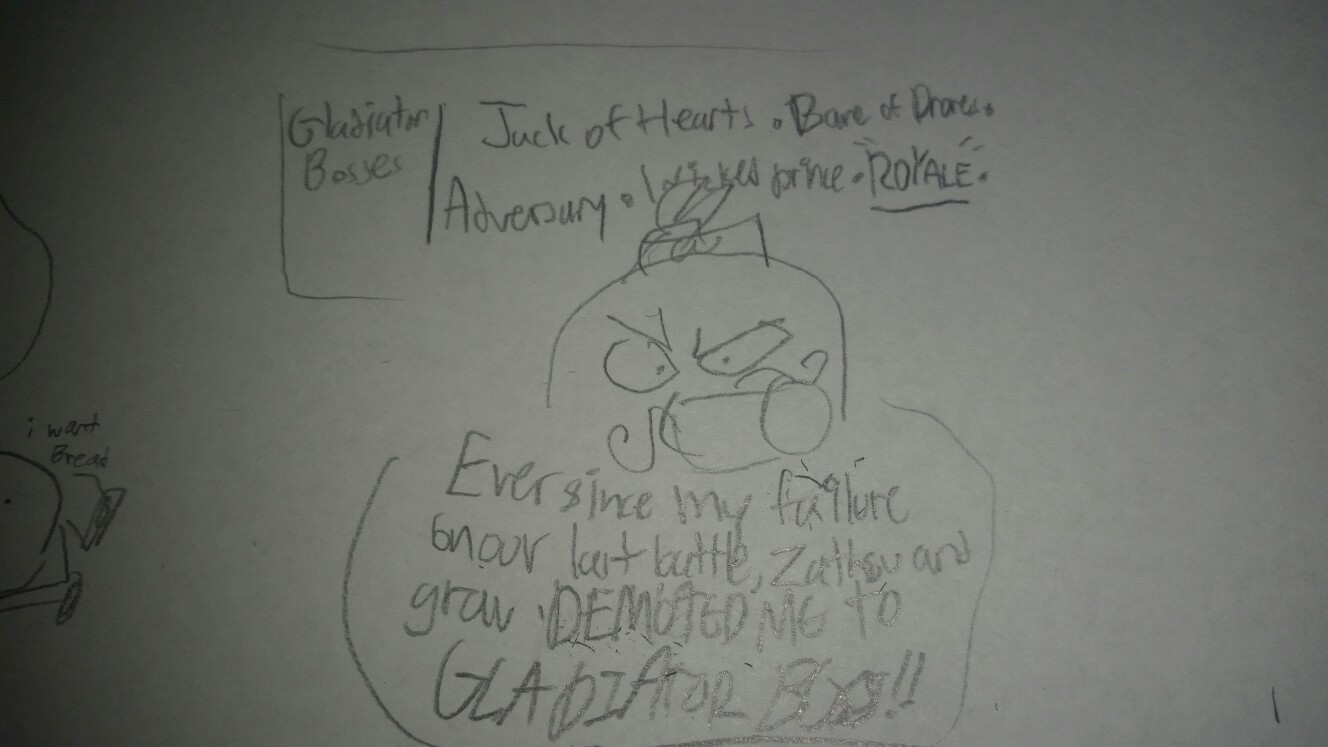 Gladiator
Bosses
Jack of Hearts. Bane of Drones.
Adversary. prince. "ROYALE".
i want
Bread
Ever since my failure
on our last battle, and
grow DEMOTED ME TO
GLADIATOR BOSS!!